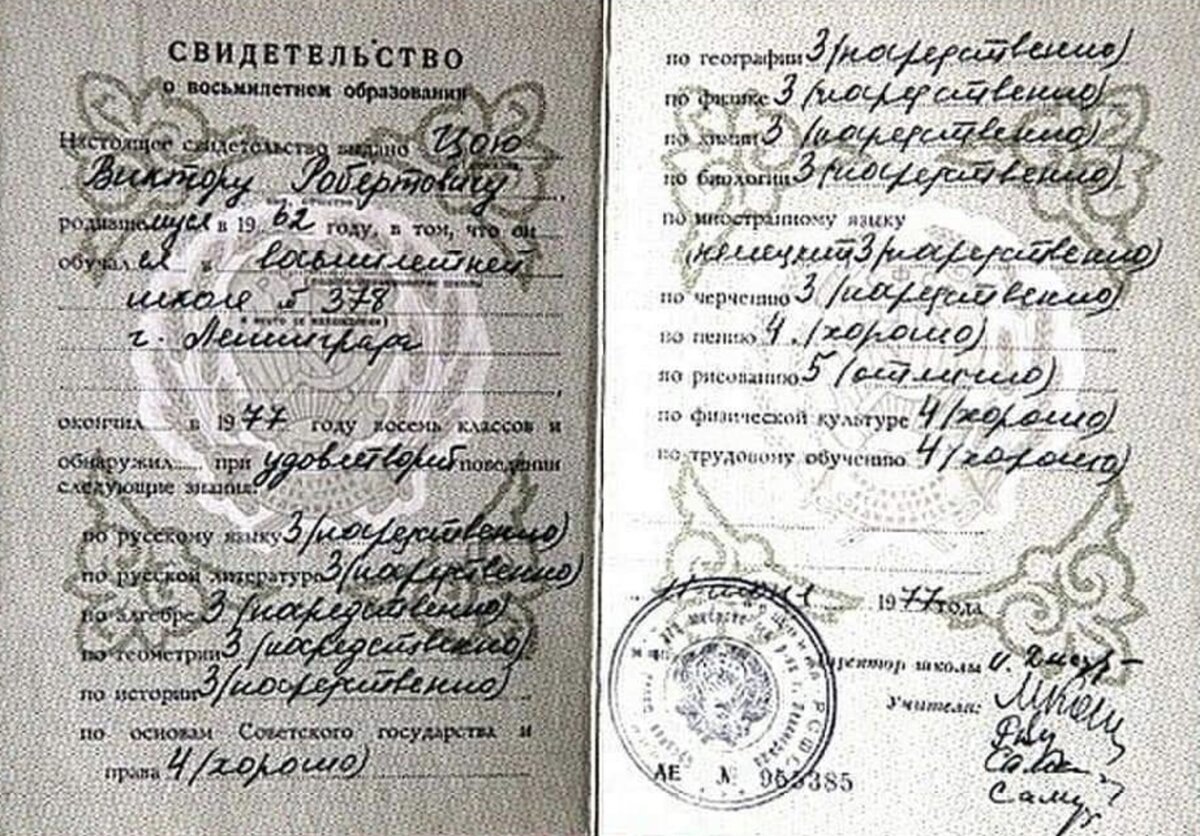 СВИДЕТЕЛЬСТВО
о восьмилетнем образовании
Настоящее свидетельство выдано Цою
Виктору Робертовичу
родившемуся в 1962 году, в том, что он
обучался в восьмилетней
школе № 378
г. Ленинграда
окончил в 1977 году восемь классов и
обнаружил при удовлетворит поведении
следующие знания:
по русскому языку 3 (посредственно)
по русской литературе 3 (посредственно)
по алгебре 3 (посредственно)
по геометрии 3 (посредственно)
по истории 3 (посредственно)
по основам Советского государства и
права 4 (хорошо)
по географии 3 (посредственно)
по физике 3 (посредственно)
по химии 3 (посредственно)
по биологии 3 (посредственно)
по иностранному языку
(немецкий 3 (посредственно)
по черчению 3 (посредственно)
по пению 4. (хорошо)
по рисованию 5 (отлично)
по физической культуре 4 (хорошо)
по трудовому обучению 4 (хорошо)
1977 года
Директор школы
Учителя:
АЕ №